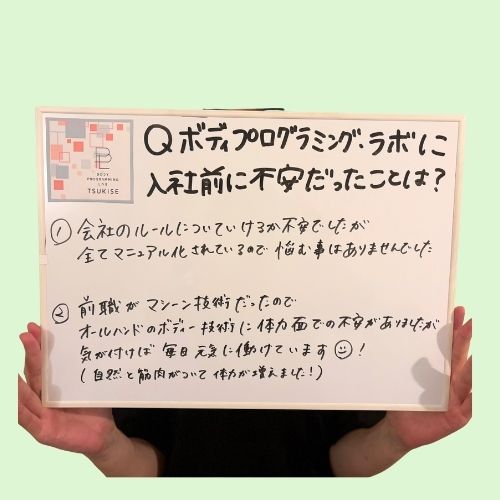 BODY
PROGRAMMING
LABO
TSUKISE
Qボディプログラミング・ラボに
入社前に不安だったことは?
① 会社のルールについていけるか不安でしたが
全てマニュアル化されているので悩む事はありませんでした
② 前職がマシーン技術だったので
オールハンドのボディー技術に体力面での不安がありましたが
気が付けば毎日元気に働けています☺!
(自然と筋肉がついて体力が増えました!)